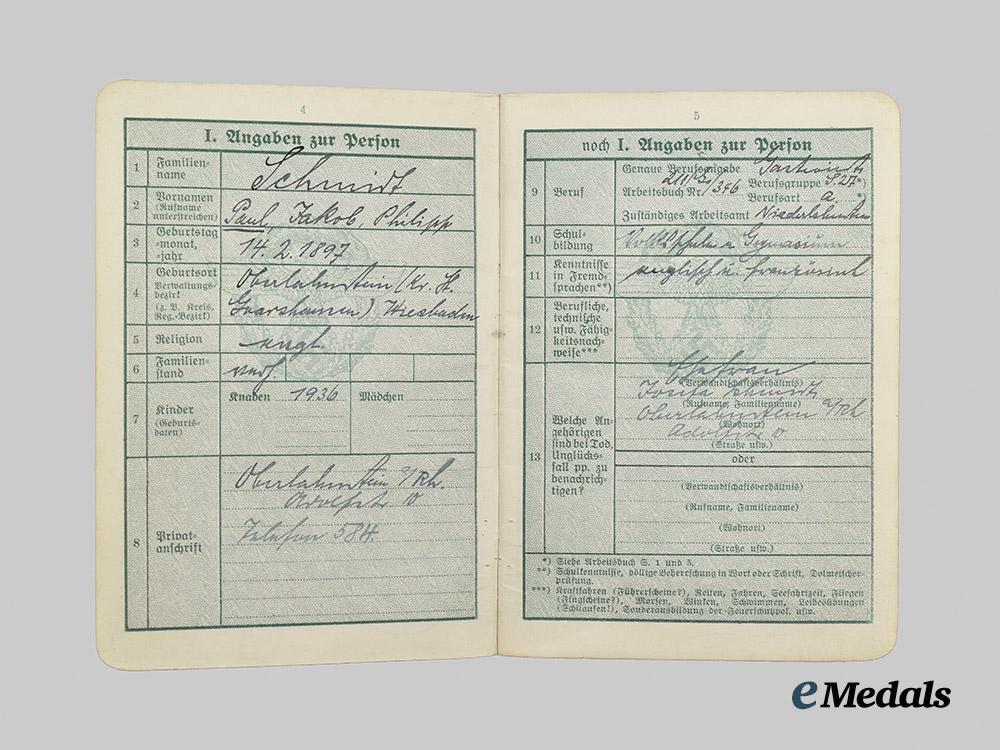 4
I. Angaben zur Person
1 Familien-
name
Schmidt
2 Vornamen
(Rufname
unterstreichen)
Paul, Jakob, Philipp
3 Geburtstag
-monat,
-jahr
14. 2. 1897
4 Geburtsort
Verwaltungs-
bezirk
(z. B. Kreis,
Reg.-Bezirk)
Oberlahnstein (Kr. St.
Goarshausen) Wiesbaden
5 Religion
evgl.
6 Familien-
stand
verh.
7 Kinder
(Geburts-
daten)
Knaben 1936 Mädchen
8 Privat-
anschrift
Oberlahnstein a/Rh.
Adolfstr. 10
Telefon 584.
5
noch I. Angaben zur Person
9 Beruf
Genaue Berufsangabe Gastwirt
Arbeitsbuch Nr. /346 Berufsgruppe
Berufsart a *)
Zuständiges Arbeitsamt Niederlahnstein
10 Schul-
bildung
Volksschule u. Gymnasium
11 Kenntnisse
in Fremd-
sprachen**)
englisch u. französisch
12 Berufliche,
technische
usw. Fähig-
keitsnach-
weise***
13 Welche An-
gehörigen
sind bei Tod,
Unglücks-
fall pp. zu
benachrich-
tigen?
Ehefrau
(Verwandtschaftsverhältnis)
Josefa Schmidt
(Rufname, Familienname)
Oberlahnstein a/Rh
(Wohnort)
Adolfstr. 10
(Straße usw.)
oder
(Verwandtschaftsverhältnis)
(Rufname, Familienname)
(Wohnort)
(Straße usw.)
*) Siehe Arbeitsbuch S. 1 und 5.
**) Schulkenntnisse, völlige Beherrschung in Wort oder Schrift, Dolmetscher-
prüfung.
***) Kraftfahren (Führerscheine?), Reiten, Fahren, Seefahrtzeit, Fliegen
(Flugscheine?), Morsen, Winken, Schwimmen, Leibesübungen
(Schilaufen!), Sonderausbildung der Feuerschutzpol. usw.
eMedals